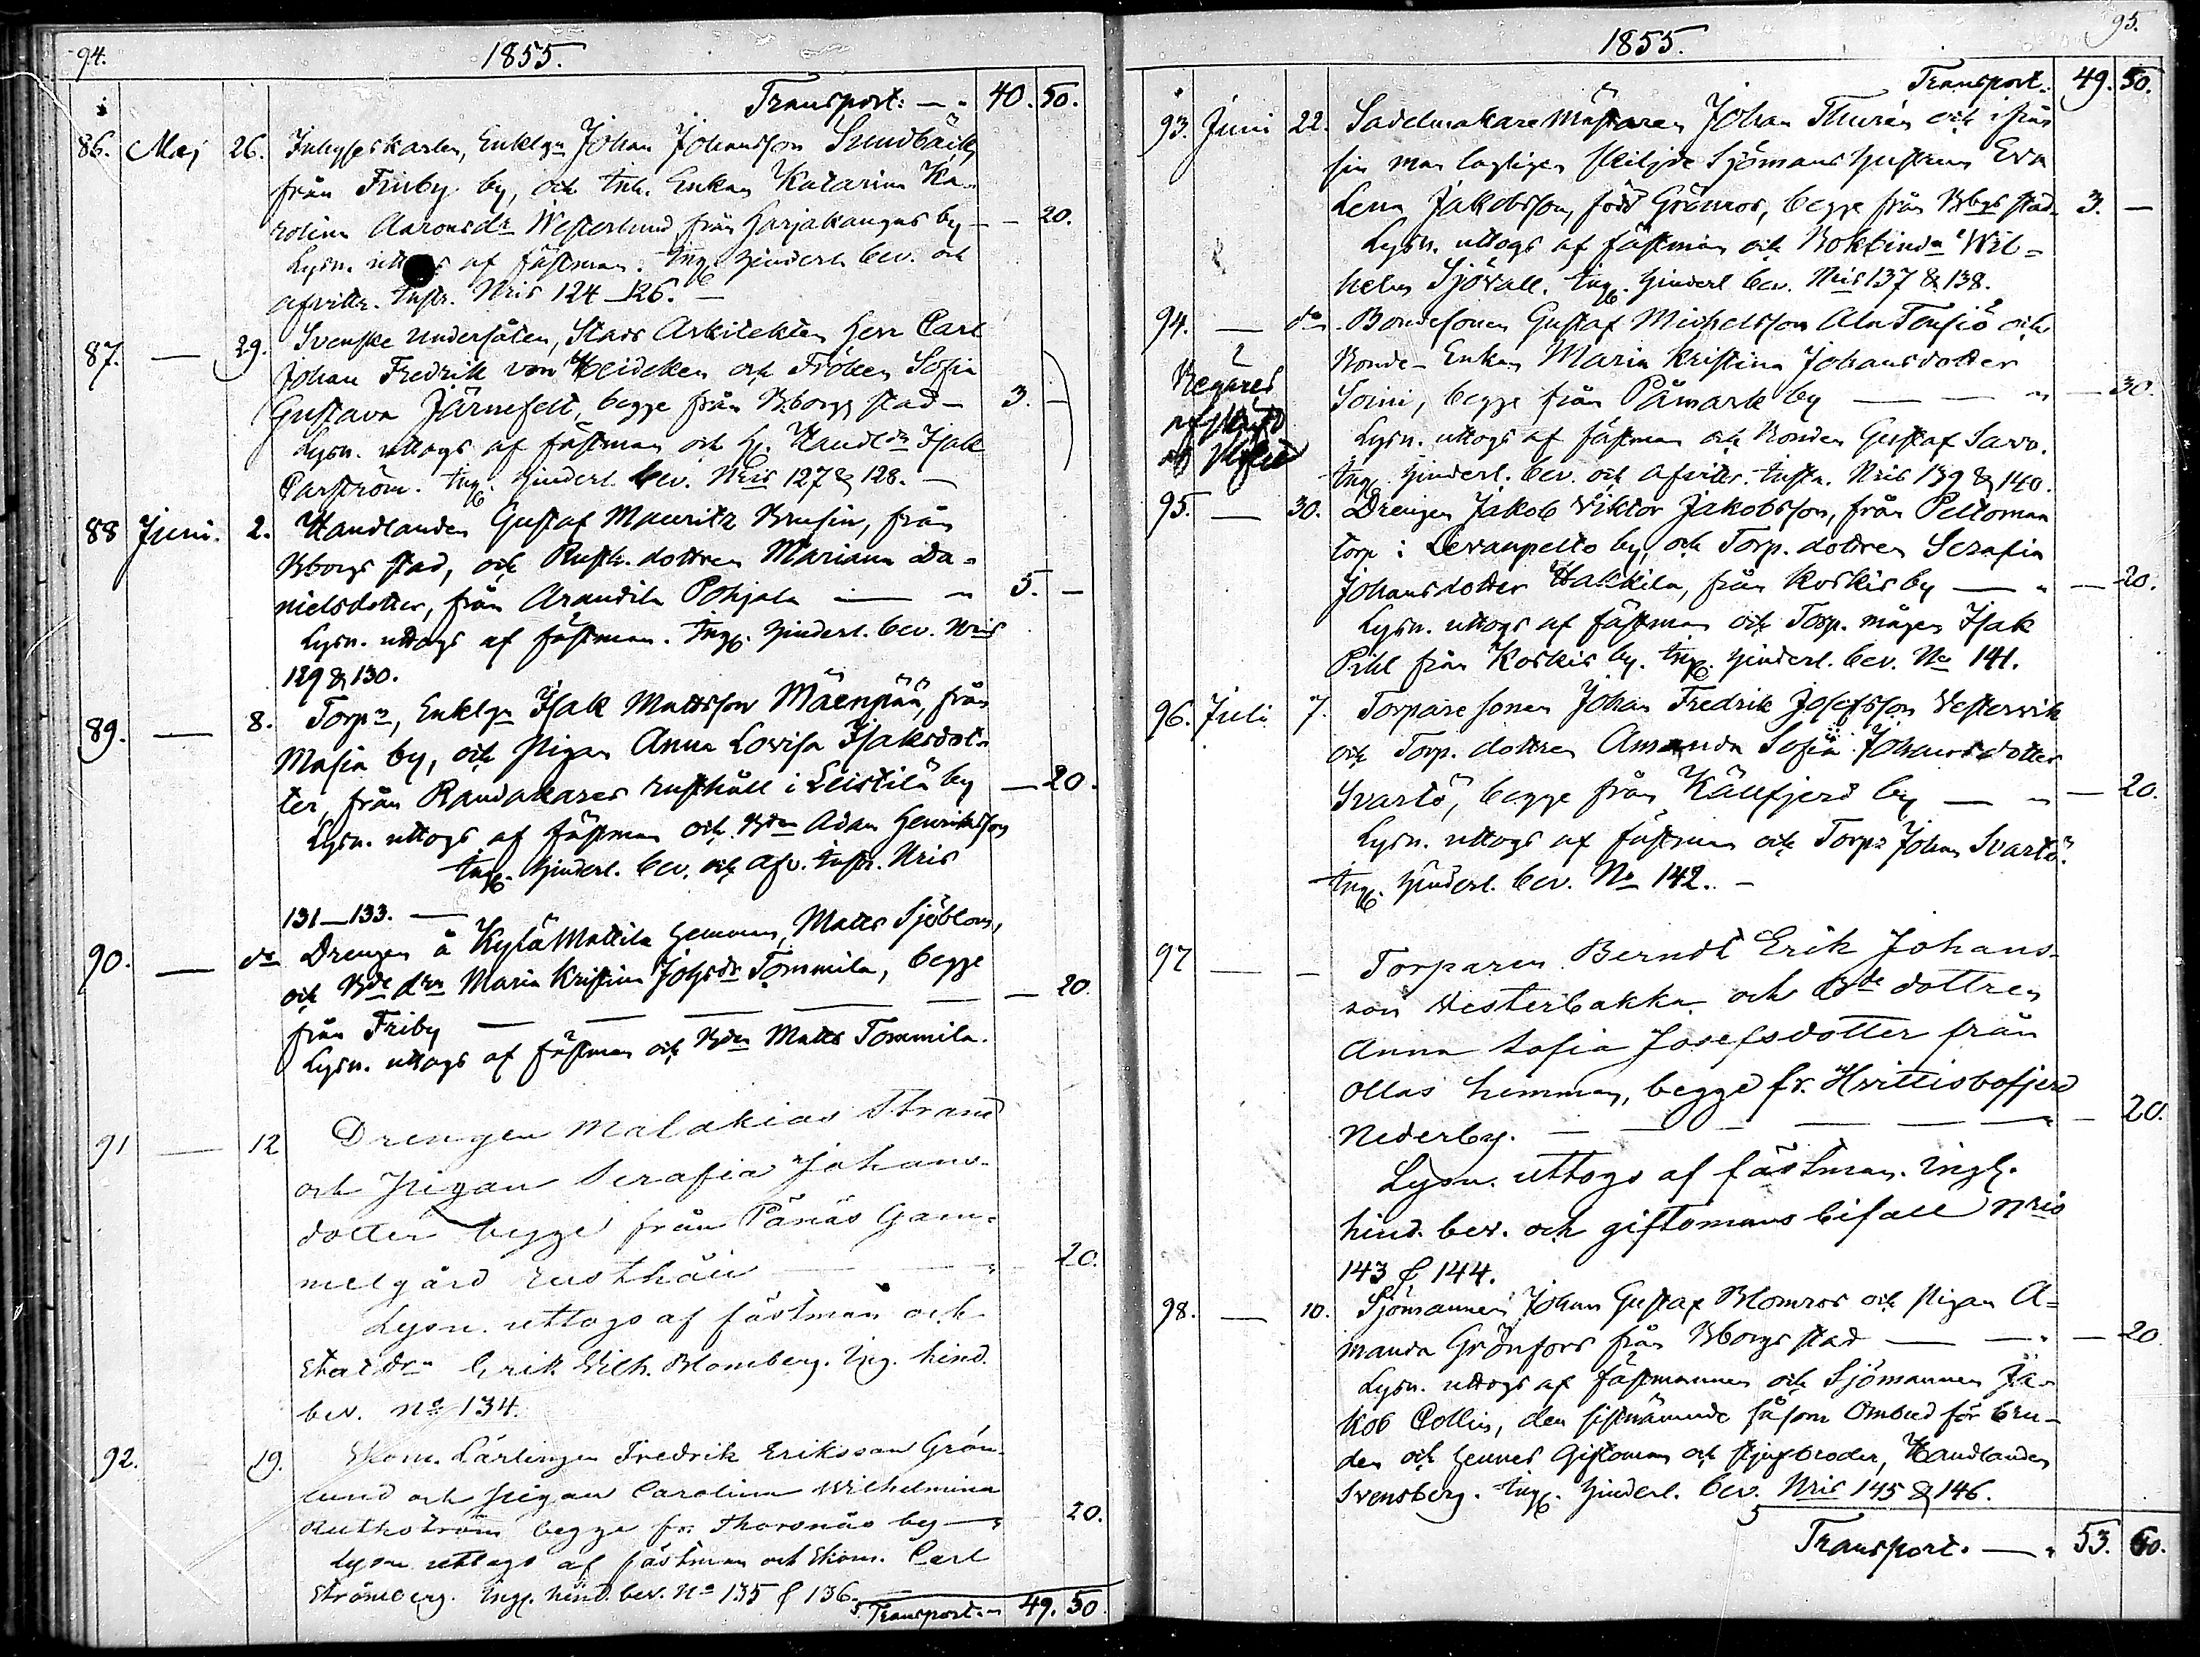 94.
1855.
Transport: — „ 40. 50.
86. Maj 26. Inhyseskarlen, Enklgn Johan Johansson Sundbäck,
från Friby by, och Inh. Enkan Katarina Ka-
rolina Aaronsdr Westerlund, från Harjakangas by — — 20.
Lysn. uttogs af fästman. Ing. hinderl. bev. och
afvittr. Instr. Nris 124–126. —
87. — 29. Svenske undersåten, Stads Arkitekten Herr Carl
Johan Fredrik von Heideken och Fröken Sofia
Gustava Järnefelt, begge från Bborgs stad — 3. —
Lysn. uttogs af fästman och Hr. Handldn Isak
Carström. Ing. hinderl. bev. Nris 127 & 128. —
88 Juni. 2. Handlanden Gustaf Mauritz Brusin, från
Bborgs stad, och Rusth. dottren Mariana Da-
nielsdotter, från Arandila Pohjala — „ 5. —
Lysn. uttogs af fästman. Ing. hinderl. bev. Nris
129 & 130.
89. — 8. Torpn, Enklgn Isak Mattsson Mäenpää, från
Masia by, och pigan Anna Lovisa Isaksdot-
ter, från Randakares rusthåll i Leistilä by — 20.
Lysn. uttogs af fästman och Bdn Adam Henriksson
Ing. hinderl. bev. och afv. instr. Nris
131–133. —
90. — do Drengen å Kylä Mattila hemman, Matts Sjöblom,
och Bde drn Maria Kristina Johsdr Tommila, begge
från Friby — — — — — 20.
Lysn. uttogs af fästman och Bdn Matts Tommila.
91 — 12 Drengen Malakias Strand
och pigan Serafia Johans-
dotter begge från Pänäs Gam-
melgård rusthåll — — „ 20.
Lysn. uttogs af fästman och
Statdrn Erik Wilh. Blomberg. Ing. hind.
bev. No 134.
92. 19. Skom. Lärlingen Fredrik Eriksson Grön-
lund och pigan Carolina Wilhelmina
Ruthström begge fr. Thorsnäs by — „ 20.
Lysn uttogs af fästman och Skom. Carl
Strömberg. Ing. hind. bev. No 135 & 136.
Transport. „ 49. 50.
95.
1855.
Transport. 49. 50.
93. Juni 22. Sadelmakare Mästaren Johan Thurén och ifrån
sin man lagligen skiljde Sjömans hustrun Eva
Lena Jakobsson, född Grönros, begge från Bbgs stad 3. —
Lysn. uttogs af fästman och Bokbindn Wil-
helm Sjövall. Ing. hinderl bev. Nris 137 & 138.
94. — do. Bondesonen Gustaf Michelsson Ala-Tensiö och
Bonde-Enkan Maria Kristina Johansdotter
Soini, begge från Påmark by — — „ — 30.
Begäres
Lysn. uttogs af fästman och Bonden Gustaf Savo.
Ing. hinderl. bev. och afvittr. instr. Nris 139 & 140.
95. — 30. Drengen Jakob Viktor Jakobsson, från Peltoman
torp i Levanpelto by, och Torp. dottren Serafia
Johansdotter Hakkila, från Koskis by — „ — 20.
Lysn. uttogs af fästman och Torp. mågen Isak
Pihl från Koskis by. Ing. hinderl. bev. No 141.
96. Juli 7. Torparesonen Johan Fredrik Josefsson Vestervik
och Torp. dottren Amanda Sofia Johansdotter
Svartö, begge från Källfjerd by — „ — 20.
Lysn. uttogs af fästman och Torpn Johan Svartö.
Ing. hinderl. bev. No 142. —
97 — — Torparen Berndt Erik Johans-
son Westerbakka och Bde dottren
Anna Sofia Josefsdotter från
Ollas hemman, begge fr. Hvittisbofjerd
Nederby. — — — — „ — 20.
Lysn. uttogs af fästman. Ing.
hind. bev. och giftomans bifall Nris
143 & 144.
98. — 10. Sjömannen Johan Gustaf Blomros och pigan A-
manda Grönfors från Bborgs stad — — „ — 20
Lysn. uttogs af fästmannen och Sjömannen Ja-
kob Collin, den sistnämnde såsom Ombud för bru-
den och hennes Giftoman och stjufbroder, Handlanden
Svensberg. Ing. hinderl. bev. Nris 145 & 146.
Transport. — „ 53. 60.